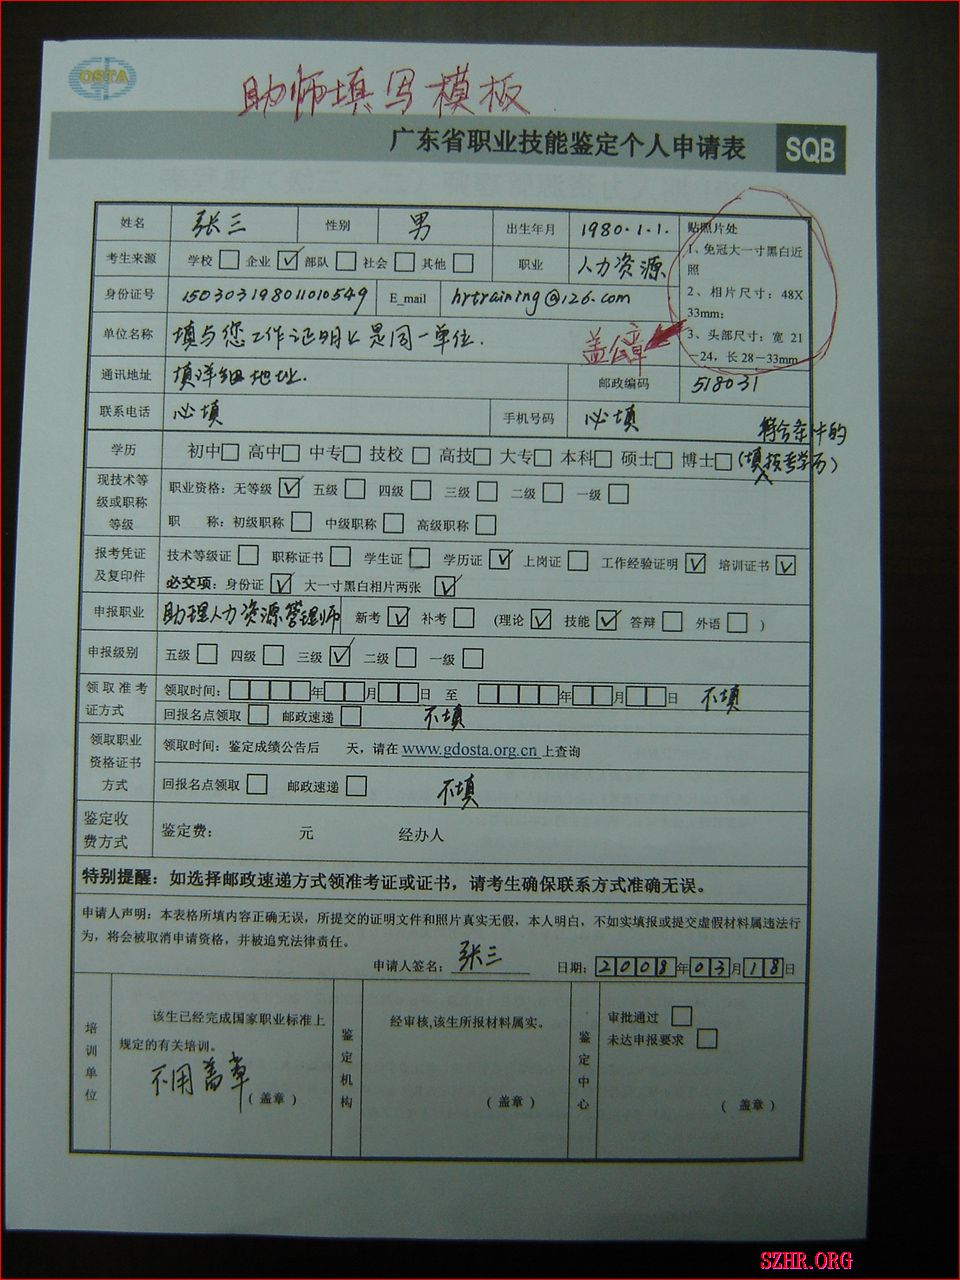 OSTA
助师填写模板
广东省职业技能鉴定个人申请表 SQB
姓名 张三 性别 男 出生年月 1980.1.1.
贴照片处
1、免冠大一寸黑白近照
2、相片尺寸：48X33mm；
3、头部尺寸：宽 21－24，长 28－33mm
考生来源 学校□ 企业☑ 部队□ 社会□ 其他□ 职业 人力资源
身份证号 150303198011010549 E_mail hrtraining@126.com
单位名称 填与您工作证明上是同一单位. 盖公章
通讯地址 填详细地址. 邮政编码 518031
联系电话 必填 手机号码 必填
学历 初中□ 高中□ 中专□ 技校□ 高技□ 大专□ 本科□ 硕士□ 博士□ (填符合条件的报考学历)
现技术等级或职称等级 职业资格：无等级☑ 五级□ 四级□ 三级□ 二级□ 一级□
职 称：初级职称□ 中级职称□ 高级职称□
报考凭证及复印件 技术等级证□ 职称证书□ 学生证□ 学历证☑ 上岗证□ 工作经验证明☑ 培训证书☑
必交项：身份证☑ 大一寸黑白相片两张☑
申报职业 助理人力资源管理师 新考☑ 补考□ (理论☑ 技能☑ 答辩□ 外语□ )
申报级别 五级□ 四级□ 三级☑ 二级□ 一级□
领取准考证方式 领取时间：□□□□年□□月□□日 至 □□□□年□□月□□日 不填
回报名点领取□ 邮政速递□ 不填
领取职业资格证书方式 领取时间：鉴定成绩公告后 天，请在 www.gdosta.org.cn 上查询
回报名点领取□ 邮政速递□ 不填
鉴定收费方式 鉴定费： 元 经办人
特别提醒：如选择邮政速递方式领准考证或证书，请考生确保联系方式准确无误。
申请人声明：本表格所填内容正确无误，所提交的证明文件和照片真实无假，本人明白，不如实填报或提交虚假材料属违法行
为，将会被取消申请资格，并被追究法律责任。
申请人签名：张三 日期：2008年03月18日
培训单位 该生已经完成国家职业标准上
规定的有关培训。
不用盖章
（ 盖章 ）
鉴定机构 经审核,该生所报材料属实。
（ 盖章 ）
鉴定中心 审批通过□
未达申报要求□
（ 盖章 ）
SZHR.ORG